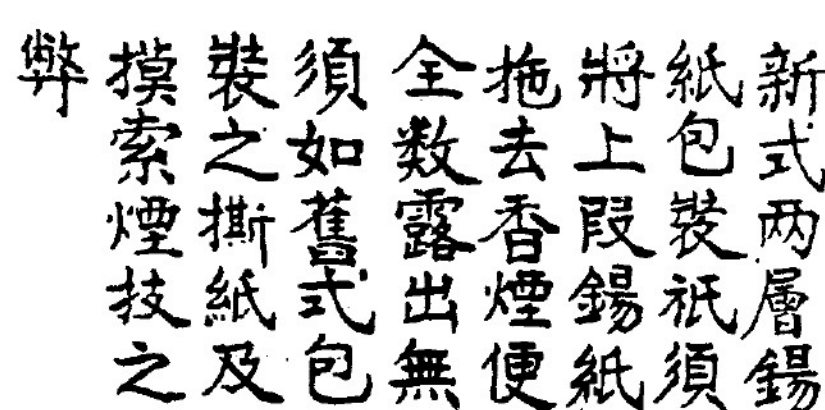 新式两層錫
紙包裝祇須
將上段錫紙
拖去香煙便
全数露出無
須如舊式包
裝之撕紙及
摸索煙技之
弊